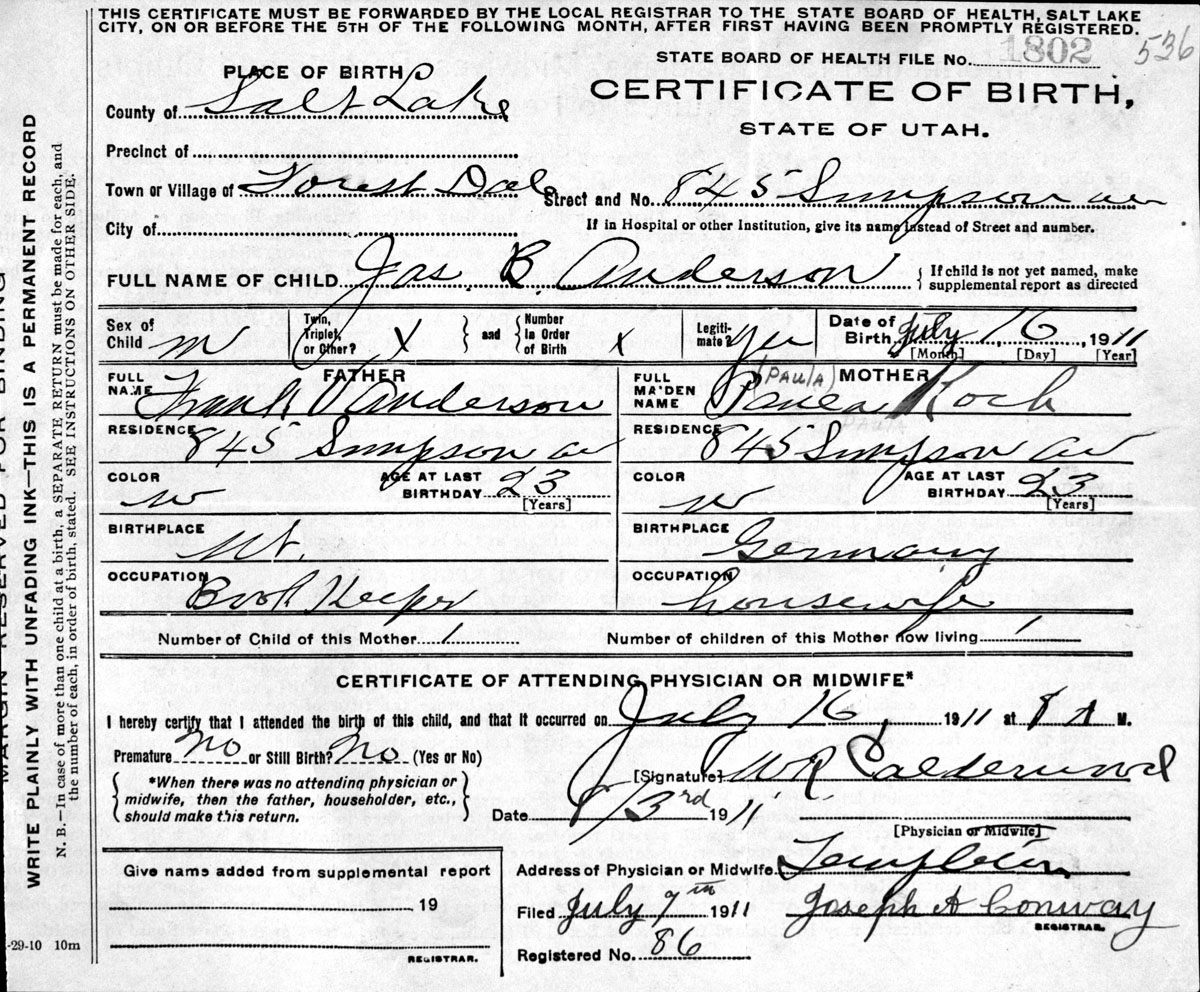 THIS CERTIFICATE MUST BE FORWARDED BY THE LOCAL REGISTRAR TO THE STATE BOARD OF HEALTH, SALT LAKE
CITY, ON OR BEFORE THE 5TH OF THE FOLLOWING MONTH, AFTER FIRST HAVING BEEN PROMPTLY REGISTERED.
536
STATE BOARD OF HEALTH FILE No. 1802
PLACE OF BIRTH
CERTIFICATE OF BIRTH,
STATE OF UTAH.
County of Salt Lake
Precinct of
Town or Village of Forest Dale
Street and No. 845 Simpson av
City of
If in Hospital or other Institution, give its name instead of Street and number.
FULL NAME OF CHILD Jas. B. Anderson
If child is not yet named, make
supplemental report as directed
Sex of Child m
Twin, Triplet, or Other? X and Number In Order of Birth x
Legiti-mate? yes
Date of Birth July 16, 1911
[Month] [Day] [Year]
FATHER
FULL NAME Frank Anderson
RESIDENCE 845 Simpson av
COLOR w
AGE AT LAST BIRTHDAY 23
[Years]
BIRTHPLACE Ut.
OCCUPATION Book Keeper
MOTHER
(PAULA)
FULL MAIDEN NAME Koch
PAULA
RESIDENCE 845 Simpson av
COLOR w
AGE AT LAST BIRTHDAY 23
[Years]
BIRTHPLACE Germany
OCCUPATION housewife
Number of Child of this Mother 1
Number of children of this Mother now living 1
CERTIFICATE OF ATTENDING PHYSICIAN OR MIDWIFE*
I hereby certify that I attended the birth of this child, and that it occurred on July 16, 1911 at 8 A M.
Premature no or Still Birth? no (Yes or No)
*When there was no attending physician or
midwife, then the father, householder, etc.,
should make this return.
[Signature] W R Calderwood
Date 3rd 1911
[Physician or Midwife]
Give name added from supplemental report
19
REGISTRAR.
Address of Physician or Midwife
Filed July 1911
Joseph A Conway
REGISTRAR.
Registered No. 86
-29-10 10m
MARGIN RESERVED FOR BINDING
WRITE PLAINLY WITH UNFADING INK—THIS IS A PERMANENT RECORD
N. B.—In case of more than one child at a birth, a SEPARATE RETURN must be made for each, and
the number of each, in order of birth, stated. SEE INSTRUCTIONS ON OTHER SIDE.